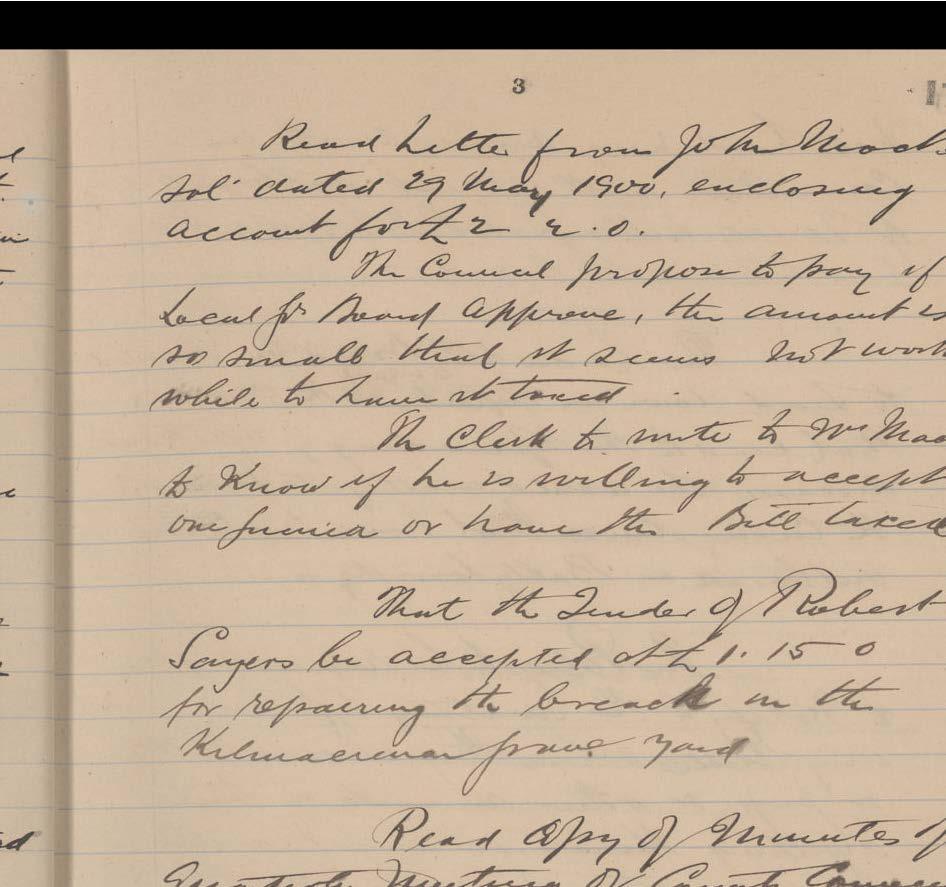 3
Read Letter from John Mack
Solr dated 29 May 1900, enclosing
account for £2 2.0.
The Council propose to pay if
Local Gt Board approve, the amount is
so small that it seems not wort
while to have it taxed
The Clerk to write to Mr Mac
to Know if he is willing to accept
one Guinea or have the Bill taxed
That the Tender of Robert
Sayers be accepted at £1. 15 0
for repairing the breach in the
grave yard
Read Copy of Minutes of
Meeting of County Council